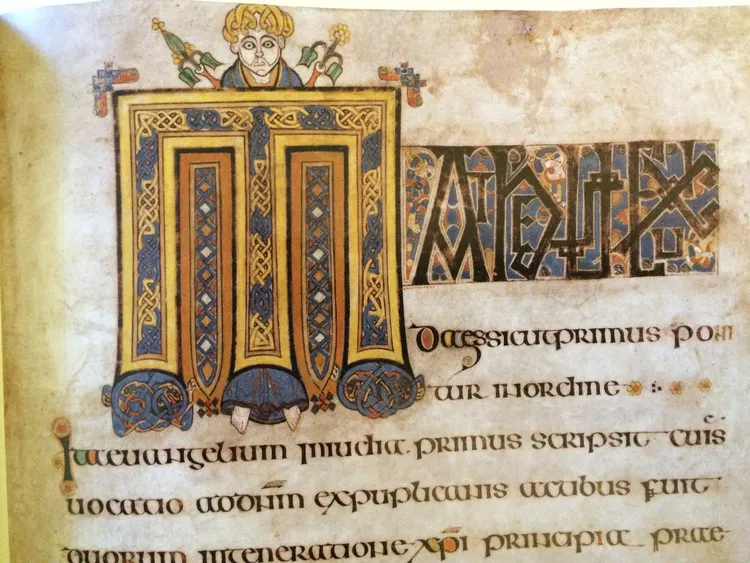 MATHEUS EX IU
daes sicut primus poni
tur in ordine
Ita euangelium in iudia primus scripsit cuis
uocatio ad dnm ex puplicanis actibus fuit
duorum in generatione xpi principia prae